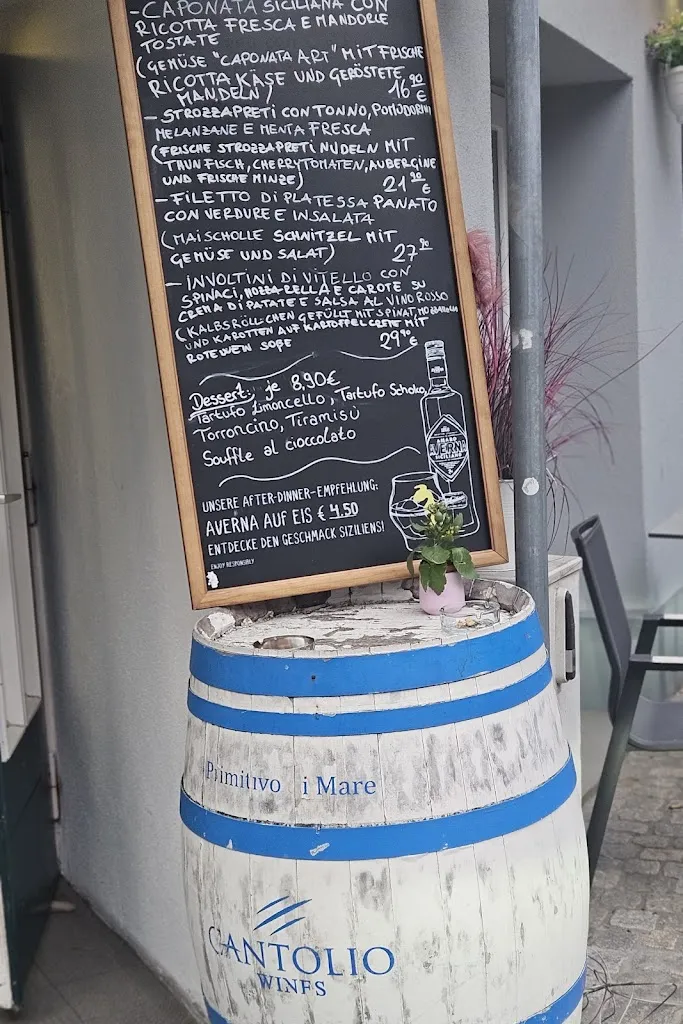 -CAPONATA SICILIANA CON
RICOTTA FRESCA E MANDORLE
TOSTATE
(GEMÜSE "CAPONATA ART" MIT FRISCHE
RICOTTA KÄSE UND GERÖSTETE
MANDELN) 16,90 €
-STROZZAPRETI CON TONNO, POMODORINI
MELANZANE E MENTA FRESCA
(FRISCHE STROZZAPRETI NUDELN MIT
THUNFISCH, CHERRYTOMATEN, AUBERGINE
UND FRISCHE MINZE) 21,90 €
-FILETTO DI PLATESSA PANATO
CON VERDURE E INSALATA
(MAISCHOLLE SCHNITZEL MIT
GEMÜSE UND SALAT) 27,90
-INVOLTINI DI VITELLO CON
SPINACI, MOZZARELLA E CAROTE SU
CREMA DI PATATE E SALSA AL VINO ROSSO
(KALBSRÖLLCHEN GEFÜLLT MIT SPINAT, MOZZARELLA
UND KAROTTEN AUF KARTOFFELCREME MIT
ROTEWEIN SOßE 29,90 €
Dessert: je 8,90€
Tartufo Limoncello, Tartufo Schoko,
Torroncino, Tiramisù
Souffle al cioccolato
AMARO
AVERNA
SICILIANO
UNSERE AFTER-DINNER-EMPFEHLUNG:
AVERNA AUF EIS € 4.50
ENTDECKE DEN GESCHMACK SIZILIENS!
ENJOY RESPONSIBLY
Primitivo i Mare
CANTOLIO
WINES